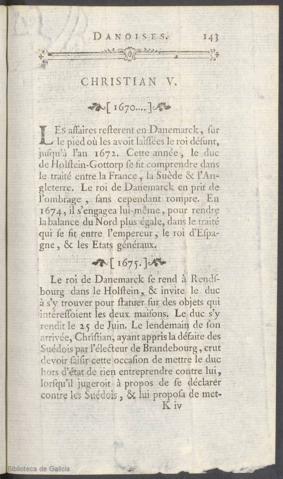 DANOISES. 143
CHRISTIAN V.
[1670....]
LES affaires resterent en Danemarck, sur
le pied où les avoit laissées le roi défunt,
jusqu'à l'an 1672. Cette année, le duc
de Holstein-Gottorp se fit comprendre dans
le traité entre la France, la Suède & l'An-
gleterre. Le roi de Danemarck en prit de
l'ombrage, sans cependant rompre. En
1674, il s'engagea lui-même, pour rendre
la balance du Nord plus égale, dans le traité
qui se fit entre l'empereur, le roi d'Espa-
gne, & les Etats généraux.
[1675.]
Le roi de Danemarck se rend à Rends-
bourg dans le Holstein, & invite le duc
à s'y trouver pour statuer sur des objets qui
intéressoient les deux maisons. Le duc s'y
rendit le 25 de Juin. Le lendemain de son
arrivée, Christian, ayant appris la défaite des
Suédois par l'électeur de Brandebourg, crut
devoir saisir cette occasion de mettre le duc
hors d'état de rien entreprendre contre lui,
lorsqu'il jugeroit à propos de se déclarer
contre les Suédois, & lui proposa de met-
K iv
Biblioteca de Galicia